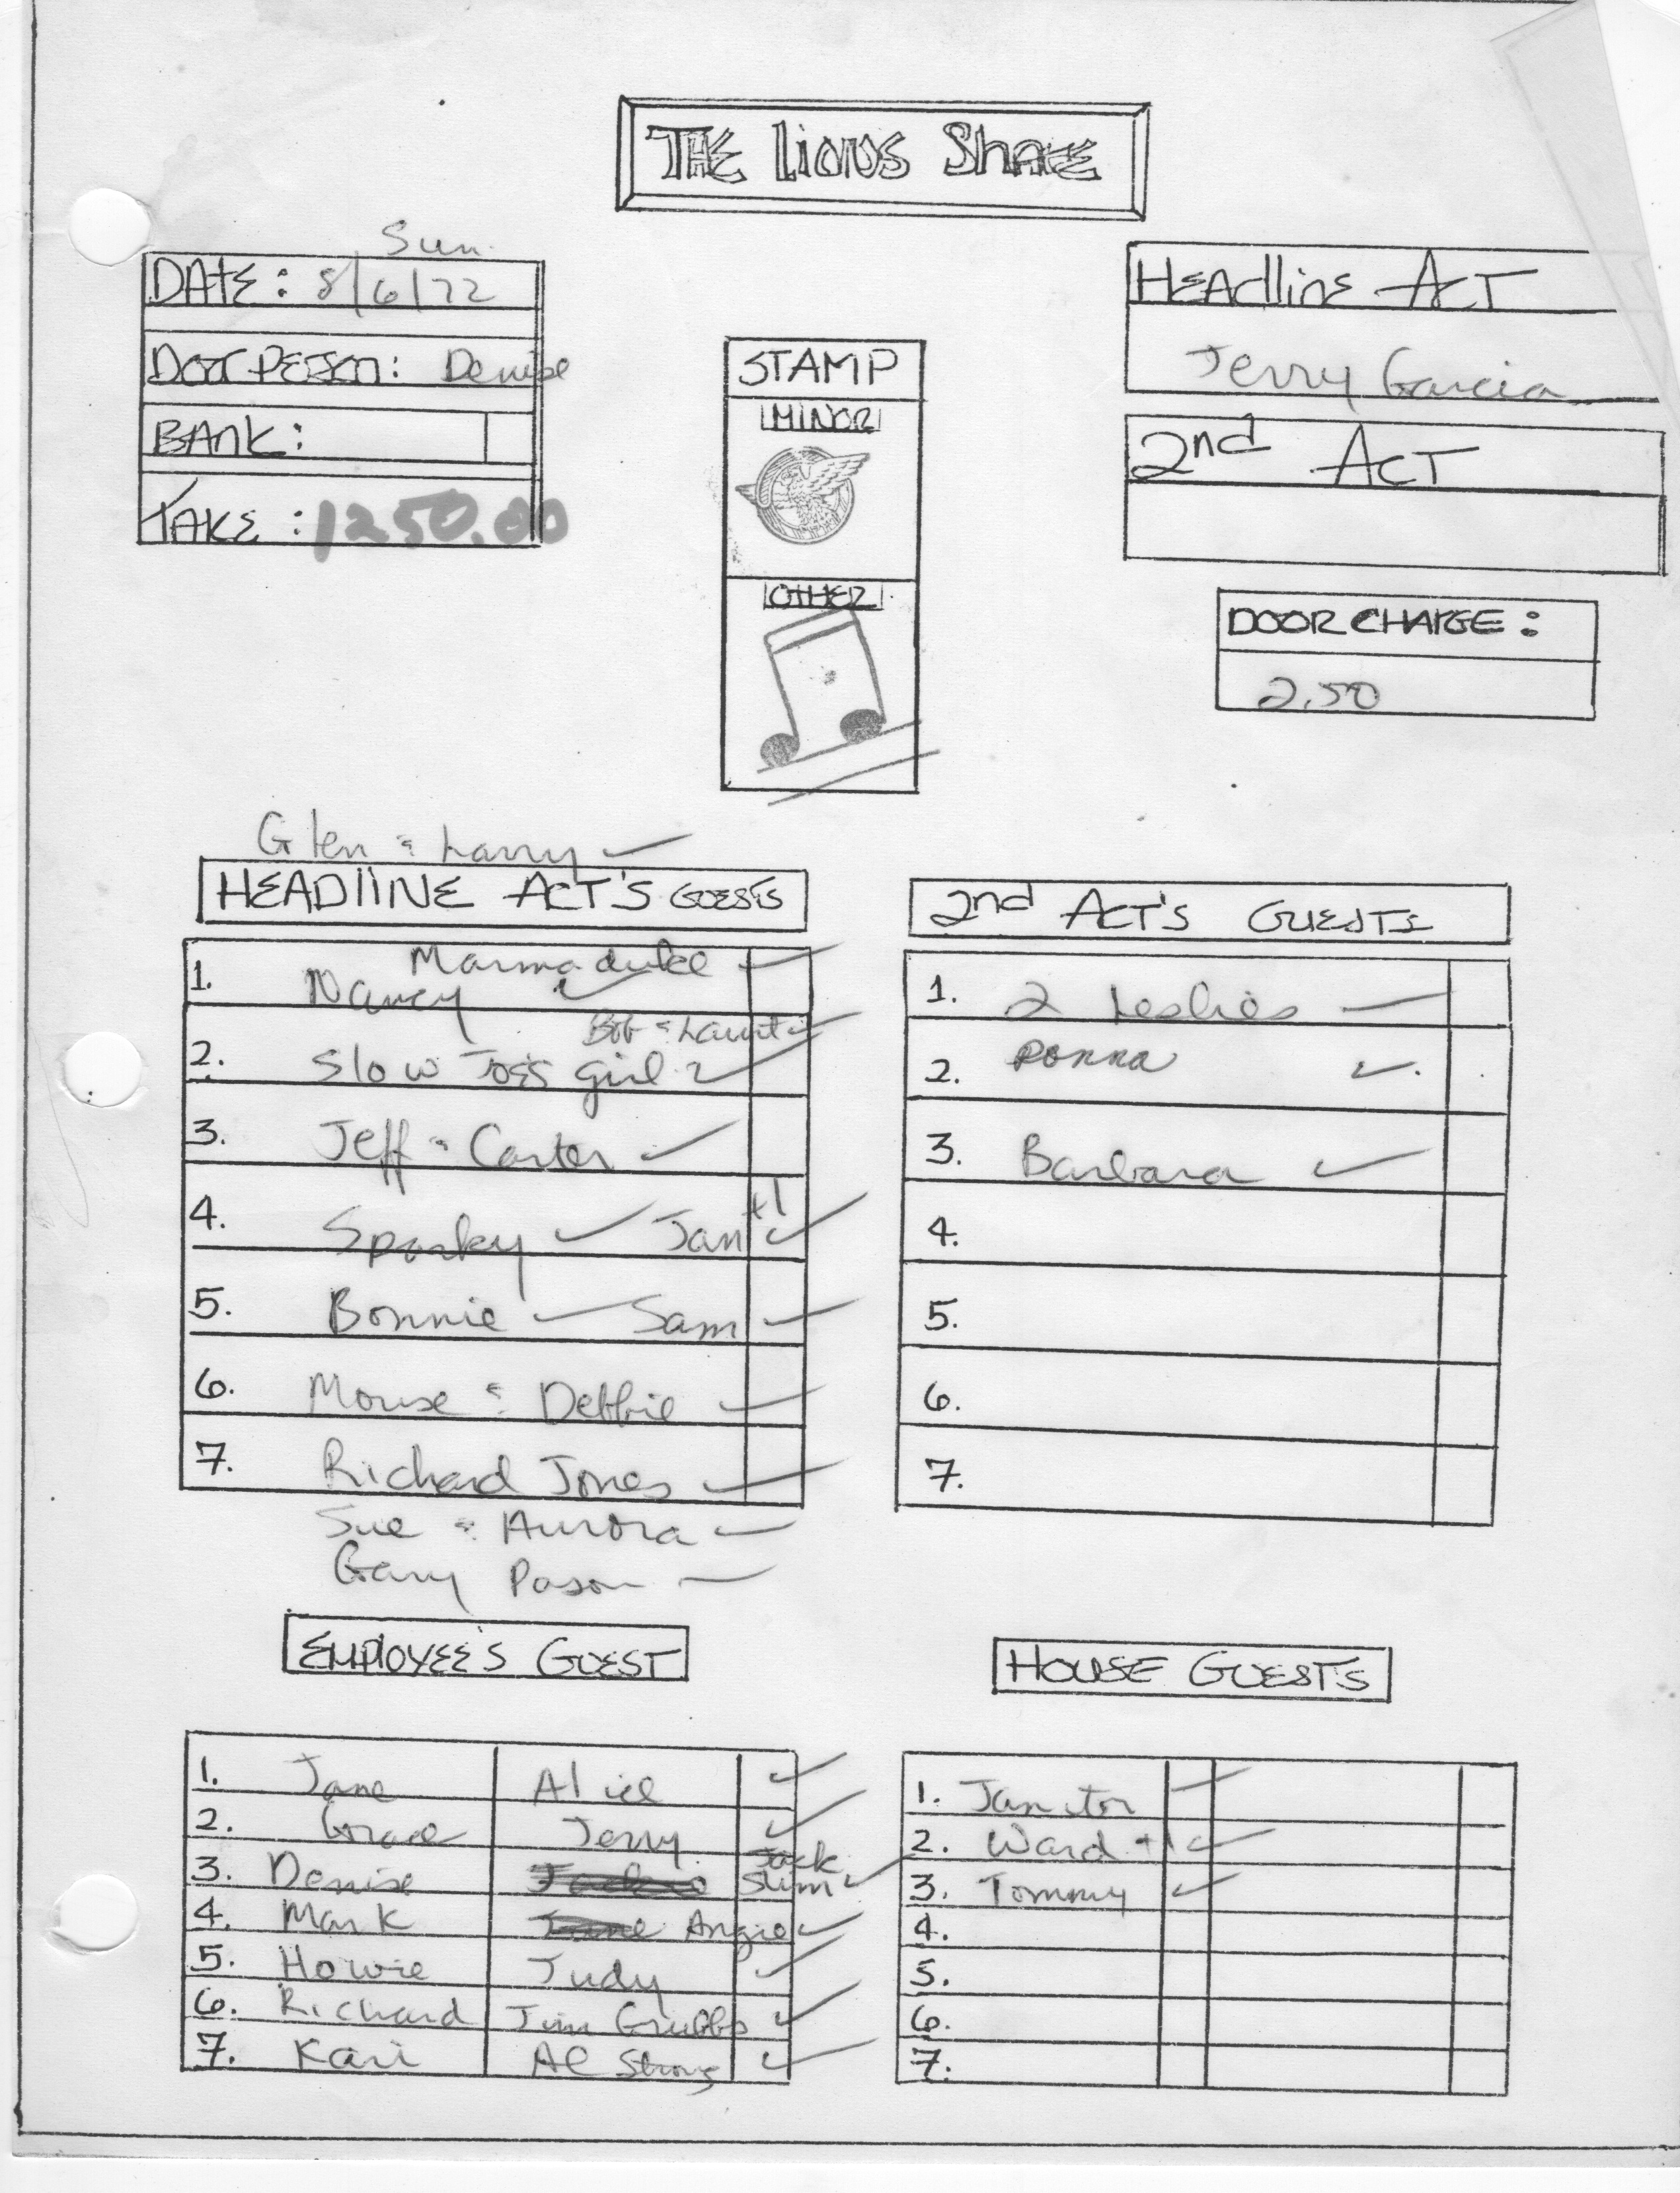 THE LIONS SHARE
Sun.
DATE: 8/6/72
DOOR PERSON: Denise
BANK:
TAKE: 1250.00
STAMP
MINOR
OTHER
HEADLINE ACT
Jerry Garcia
2nd ACT
DOOR CHARGE:
2.50
Glen & Larry
HEADLINE ACT'S GUESTS
1. Marmaduke
Nancy
Bob &
2. Slow Joe's girl
3. Jeff & Carter
4. Sparky Jan +1
5. Bonnie Sam
6. Mouse & Debbie
7. Richard Jones
Sue & Aurora
Gary
2nd ACT'S GUESTS
1. 2 Leslies
2. Donna
3. Barbara
4.
5.
6.
7.
EMPLOYEE'S GUEST
1. Jane Alice
2. Grace Jerry
3. Denise Jack Slim
4. Mark Angie
5. Howie Judy
6. Richard Jim Grubbs
7. Kari Al Strong
HOUSE GUESTS
1. Janitor
2. Ward +1
3. Tommy
4.
5.
6.
7.